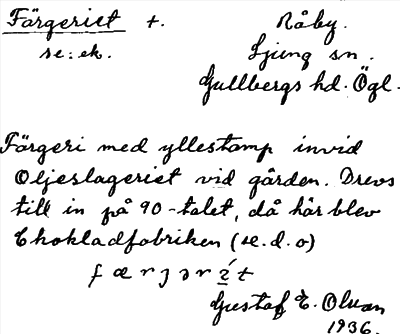 Färgeriet t. Råby.
se: ek. Ljung sn.
Gullbergs hd. Ögl.
Färgeri med yllestamp invid
Oljeslageriet vid gården. Drevs
till in på 90-talet, då här blev
Chokladfabriken (se. d. o)
færjər
Gustaf E. Olsson
1936.